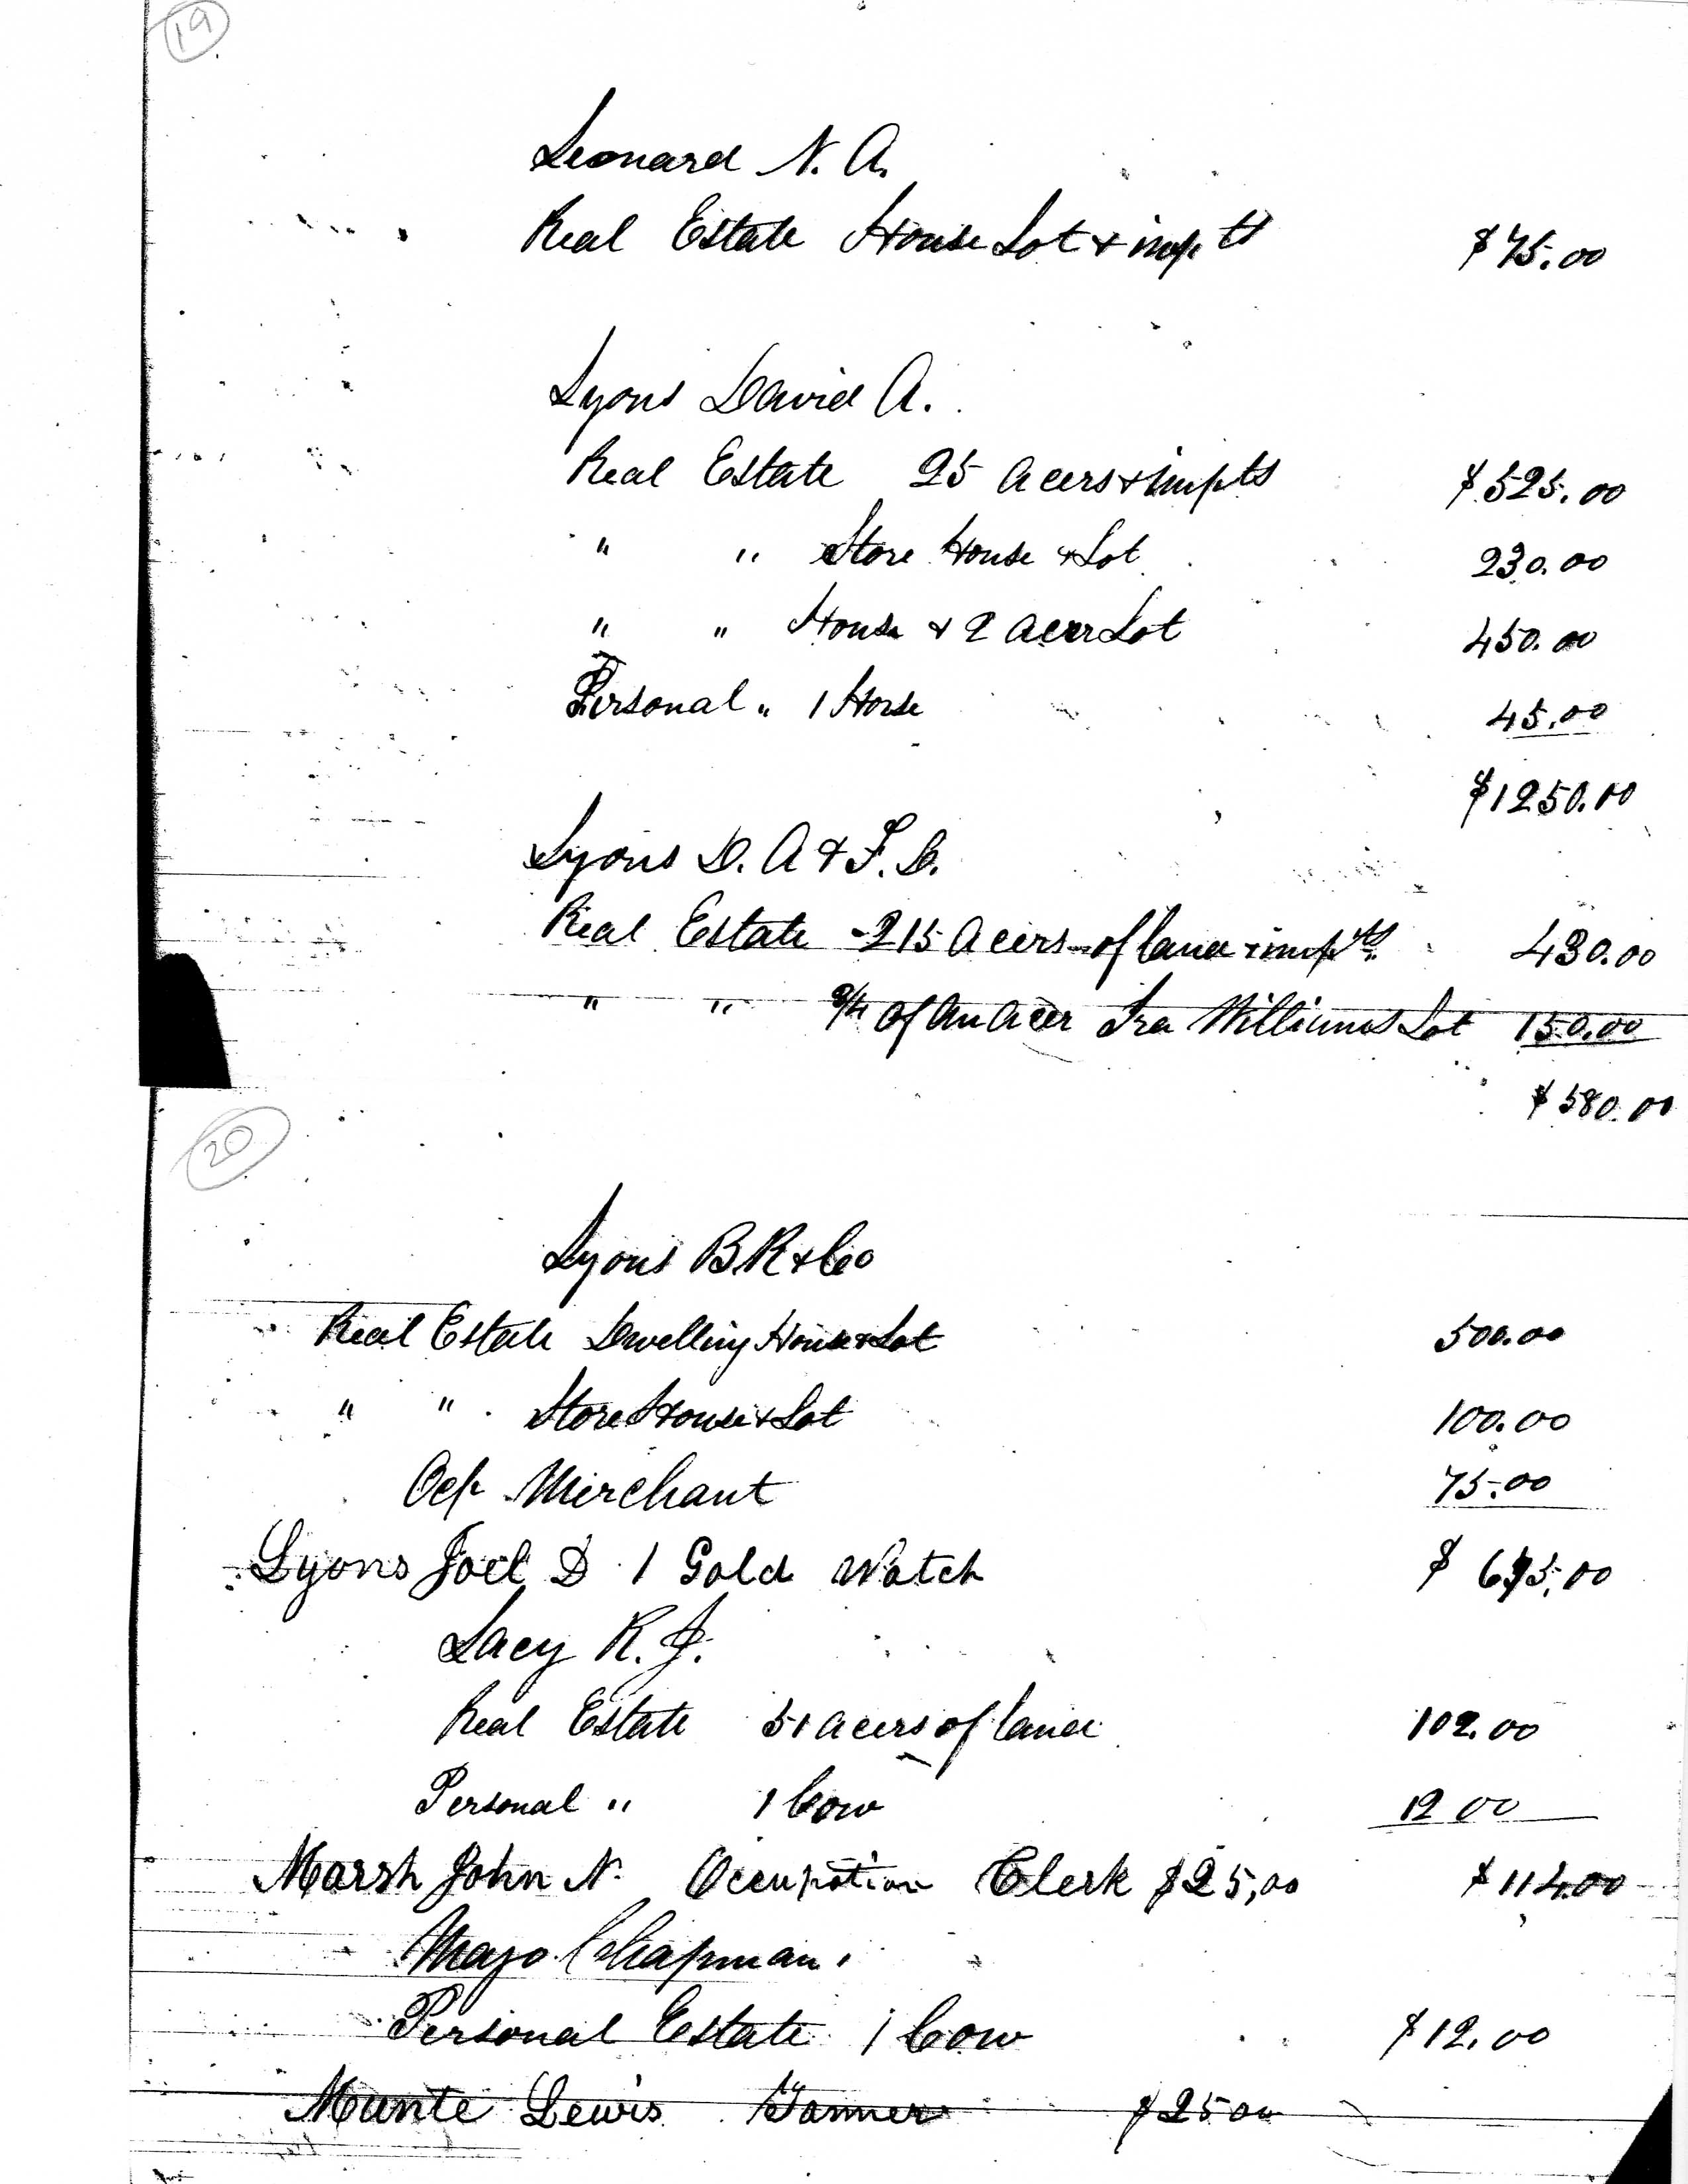 19
Leonard N. A.
Real Estate House Lot & impts $75.00
Lyons David A.
Real Estate 25 Acers & impts $525.00
" " Store House & Lot 230.00
" " House & 2 Acer Lot 450.00
Personal " 1 Horse 45.00
$1250.00
Lyons D. A & F. D.
Real Estate 215 Acers of land & impts 430.00
" " 3/4 of An Acer Ira Williams Lot 150.00
$580.00
20
Lyons B R & Co
Real Estate Dwelling House & Lot 500.00
" " Store House & Lot 100.00
Ocp Merchant 75.00
Lyons Joel D 1 Gold Watch $ 675.00
Lacy R. J.
Real Estate 51 acers of land 102.00
Personal " 1 Cow 12 00
Marsh John N. Occupation Clerk $25,00 $114.00
Mayo Chapman.
Personal Estate 1 Cow $12.00
Lewis $25 00